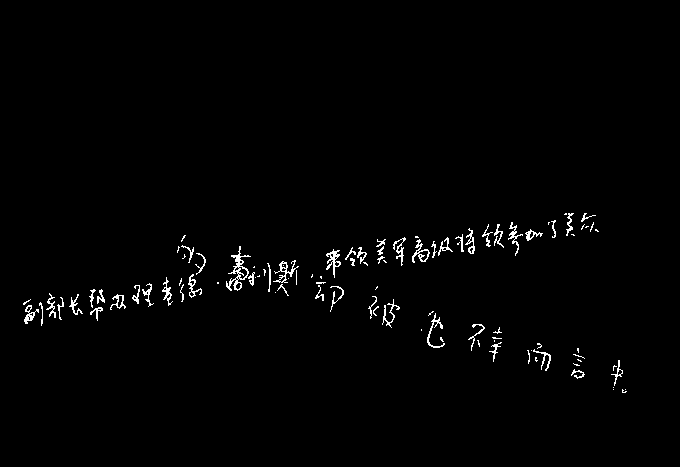 副部长帮办理查德·利斯带领美军高级将领参加了美众
却被他不幸而言中。